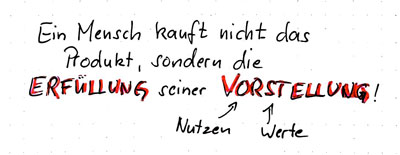 Ein Mensch kauft nicht das
Produkt, sondern die
ERFÜLLUNG seiner VORSTELLUNG!
Nutzen Werte